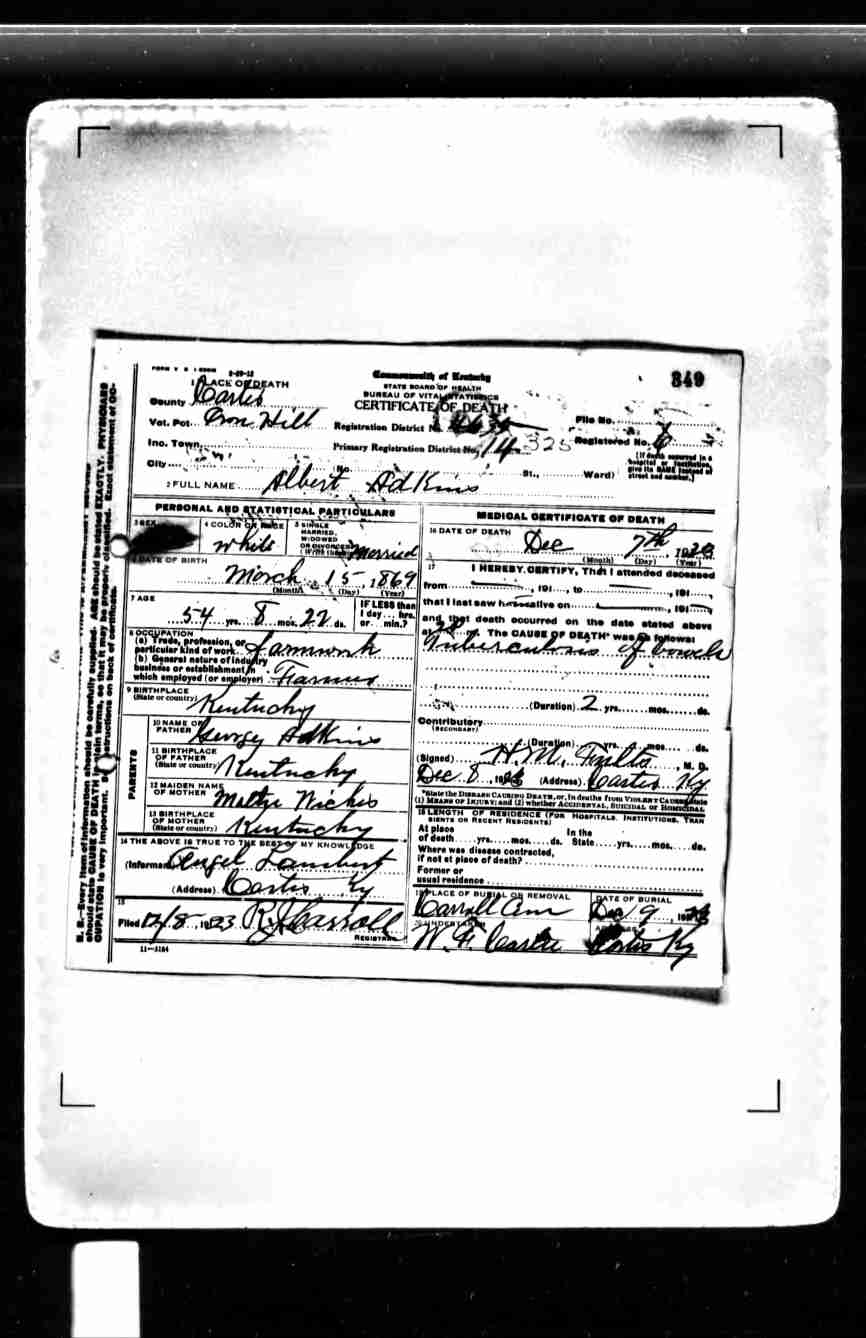 349
Commonwealth of Kentucky
STATE BOARD OF HEALTH
BUREAU OF VITAL STATISTICS
CERTIFICATE OF DEATH
1 PLACE OF DEATH
County Carter
Vot. Pct. Iron Hill
Registration District No.
File No.
Inc. Town
Primary Registration District No. 14 325
Registered No.
City
No.
St., Ward)
[If death occurred in a hospital or institution, give its NAME instead of street and number.]
2 FULL NAME Albert Adkins
PERSONAL AND STATISTICAL PARTICULARS
3 SEX
4 COLOR OR RACE white
5 SINGLE MARRIED, WIDOWED OR DIVORCED Married
6 DATE OF BIRTH
March 15, 1869
(Month) (Day) (Year)
7 AGE
54 yrs. 8 mos. 22 ds.
IF LESS than 1 day... hrs. or... min.?
8 OCCUPATION
(a) Trade, profession, or particular kind of work farmwork
(b) General nature of industry business or establishment in which employed (or employer) Farmer
9 BIRTHPLACE
(State or country) Kentucky
PARENTS
10 NAME OF FATHER Georgey Adkins
11 BIRTHPLACE OF FATHER (State or country) Kentucky
12 MAIDEN NAME OF MOTHER
13 BIRTHPLACE OF MOTHER (State or country) Kentucky
14 THE ABOVE IS TRUE TO THE BEST OF MY KNOWLEDGE
(Informant) Angel Lambert
(Address) Carter Ky
15
Filed 12/8 1923 R J Carroll
REGISTRAR
11-3184
MEDICAL CERTIFICATE OF DEATH
16 DATE OF DEATH
Dec 7th, 1923
(Month) (Day) (Year)
17
I HEREBY CERTIFY, That I attended deceased
from , 191 , to , 191 ,
that I last saw h alive on , 191
and that death occurred on the date stated above
at m. The CAUSE OF DEATH* was as follows:
Tuberculosis of bowels
(Duration) 2 yrs. mos. ds.
Contributory
(SECONDARY)
(Duration) yrs. mos. ds.
(Signed) H. M. , M. D.
Dec 8, 1923 (Address) Carter Ky
*State the DISEASE CAUSING DEATH, or, in deaths from VIOLENT CAUSES, state
(1) MEANS OF INJURY; and (2) whether ACCIDENTAL, SUICIDAL or HOMICIDAL
18 LENGTH OF RESIDENCE (FOR HOSPITALS, INSTITUTIONS, TRANSIENTS OR RECENT RESIDENTS)
At place of death yrs. mos. ds.
In the State yrs. mos. ds.
Where was disease contracted, if not at place of death?
Former or usual residence
19 PLACE OF BURIAL OR REMOVAL
Carroll Cem
DATE OF BURIAL
Dec 9, 1923
20 UNDERTAKER
W. F.
ADDRESS
Carter Ky